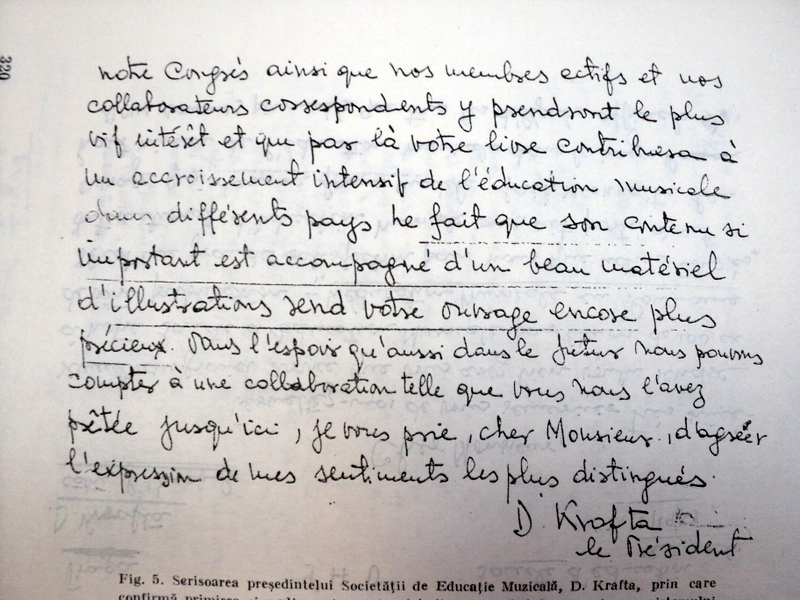 320
notre Congrès ainsi que nos membres actifs et nos
collaborateurs correspondents y prendront le plus
vif intérêt et que par là votre livre contribuera à
un accroissement intensif de l'éducation musicale
dans différents pays Le fait que son contenu si
important est accompagné d'un beau matériel
d'illustrations rend votre ouvrage encore plus
précieux. Dans l'espoir qu'aussi dans le futur nous pouvons
compter à une collaboration telle que vous nous l'avez
prêtée jusqu'ici, je vous prie, cher Monsieur, d'agréer
l'expression de mes sentiments les plus distingués.
D. Krafta
le Président
Fig. 5. Serisoarea președintelui Societății de Educație Muzicală, D. Krafta, prin care
confirmă primirea